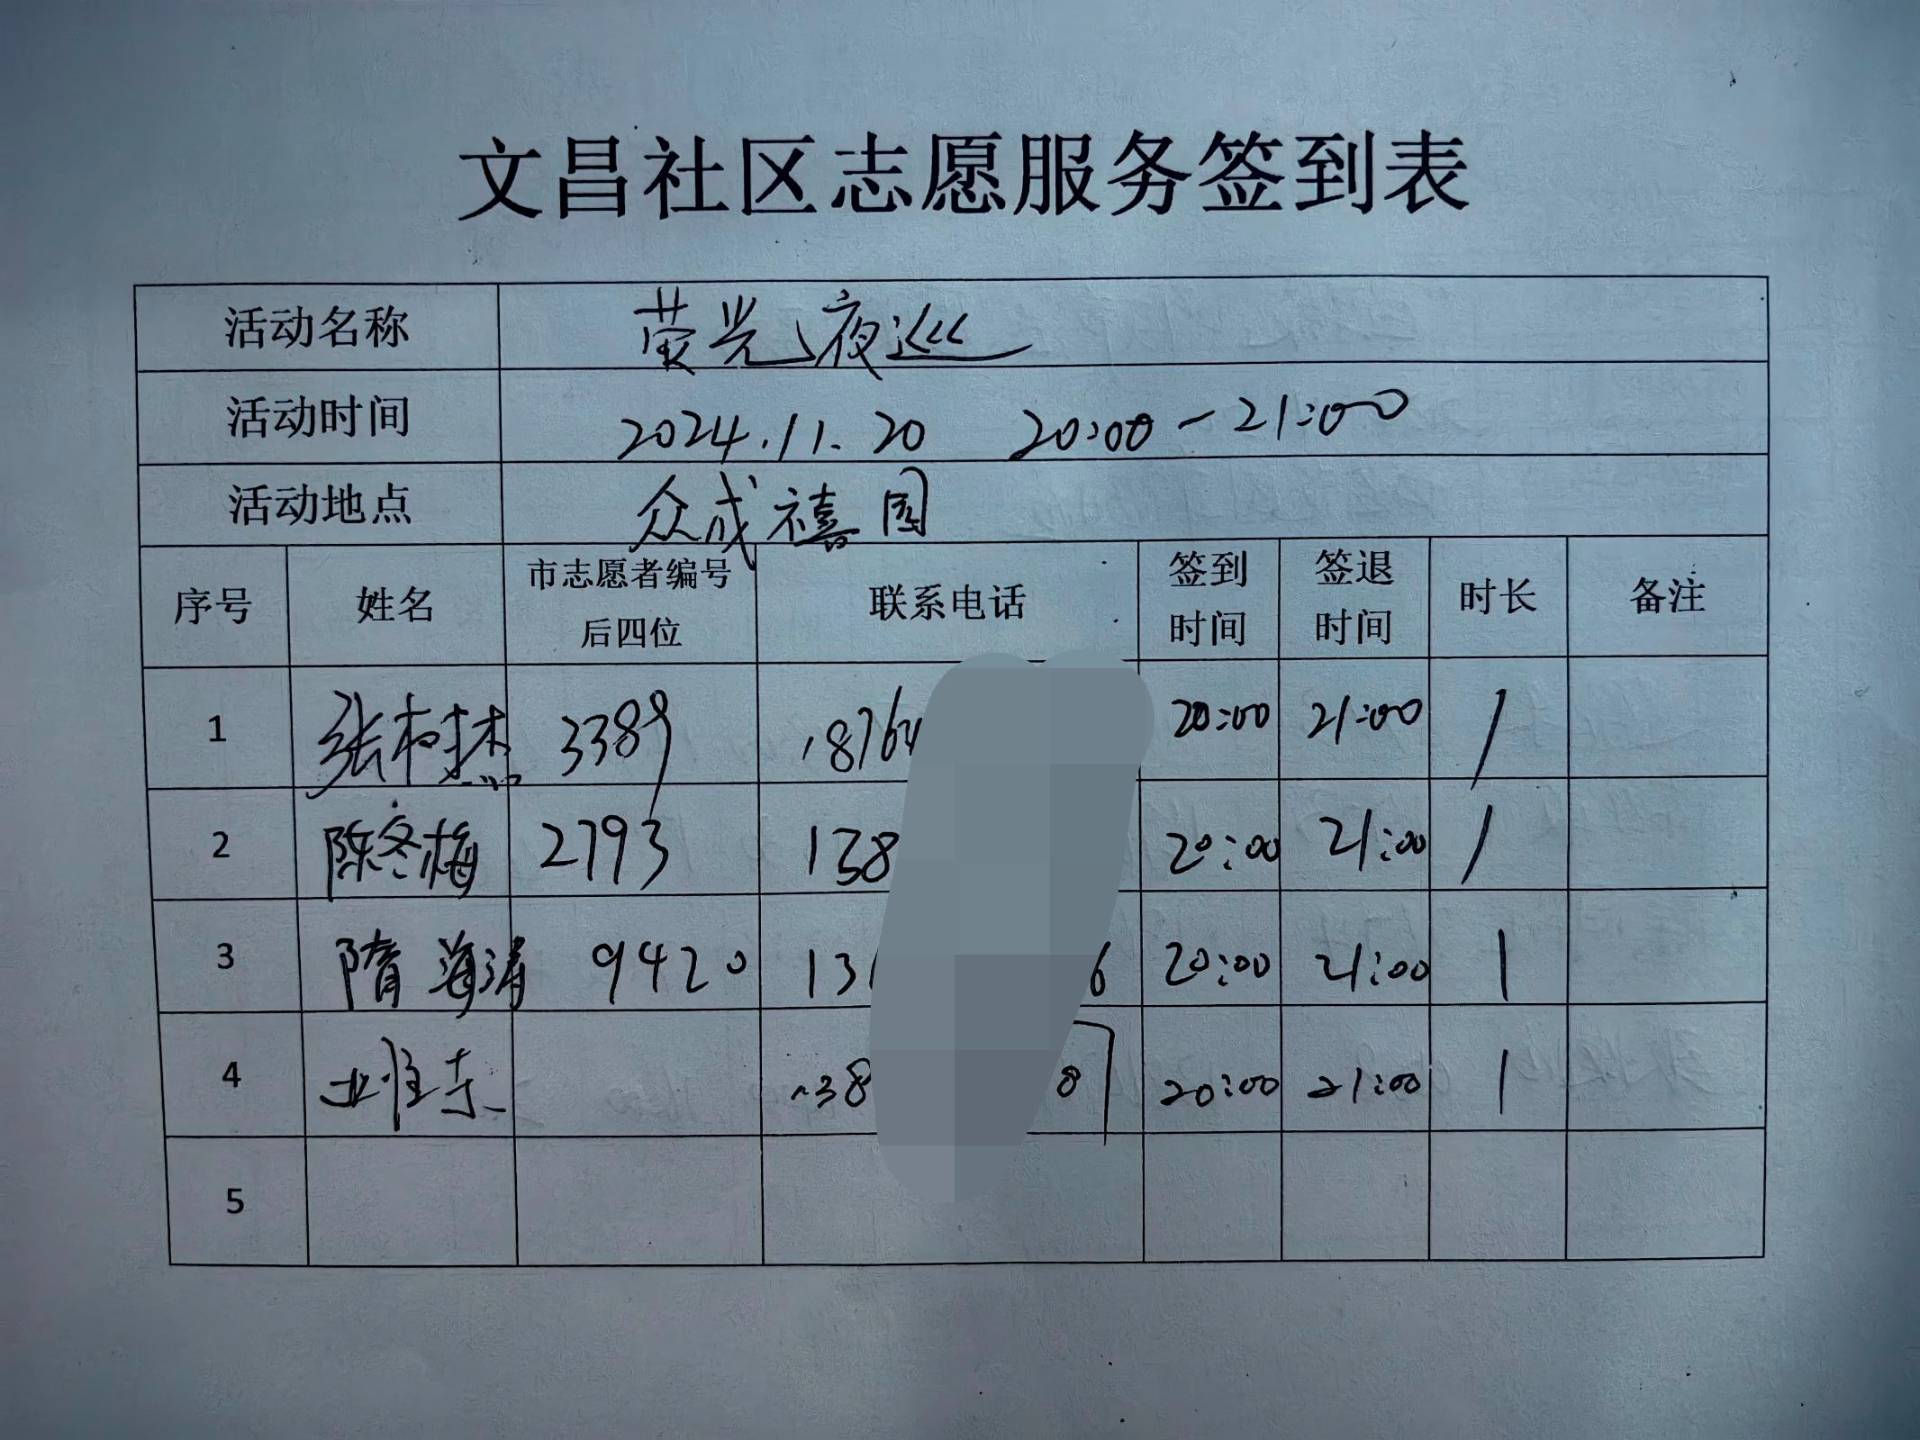 文昌社区志愿服务签到表
活动名称 荧光夜巡
活动时间 2024.11.20 20:00-21:00
活动地点 众成禧园
序号 姓名 市志愿者编号后四位 联系电话 签到时间 签退时间 时长 备注
1 张树杰 3389 18764 20:00 21:00 1
2 陈冬梅 2793 138 20:00 21:00 1
3 隋海涛 9420 13 6 20:00 21:00 1
4 138 87 20:00 21:00 1
5